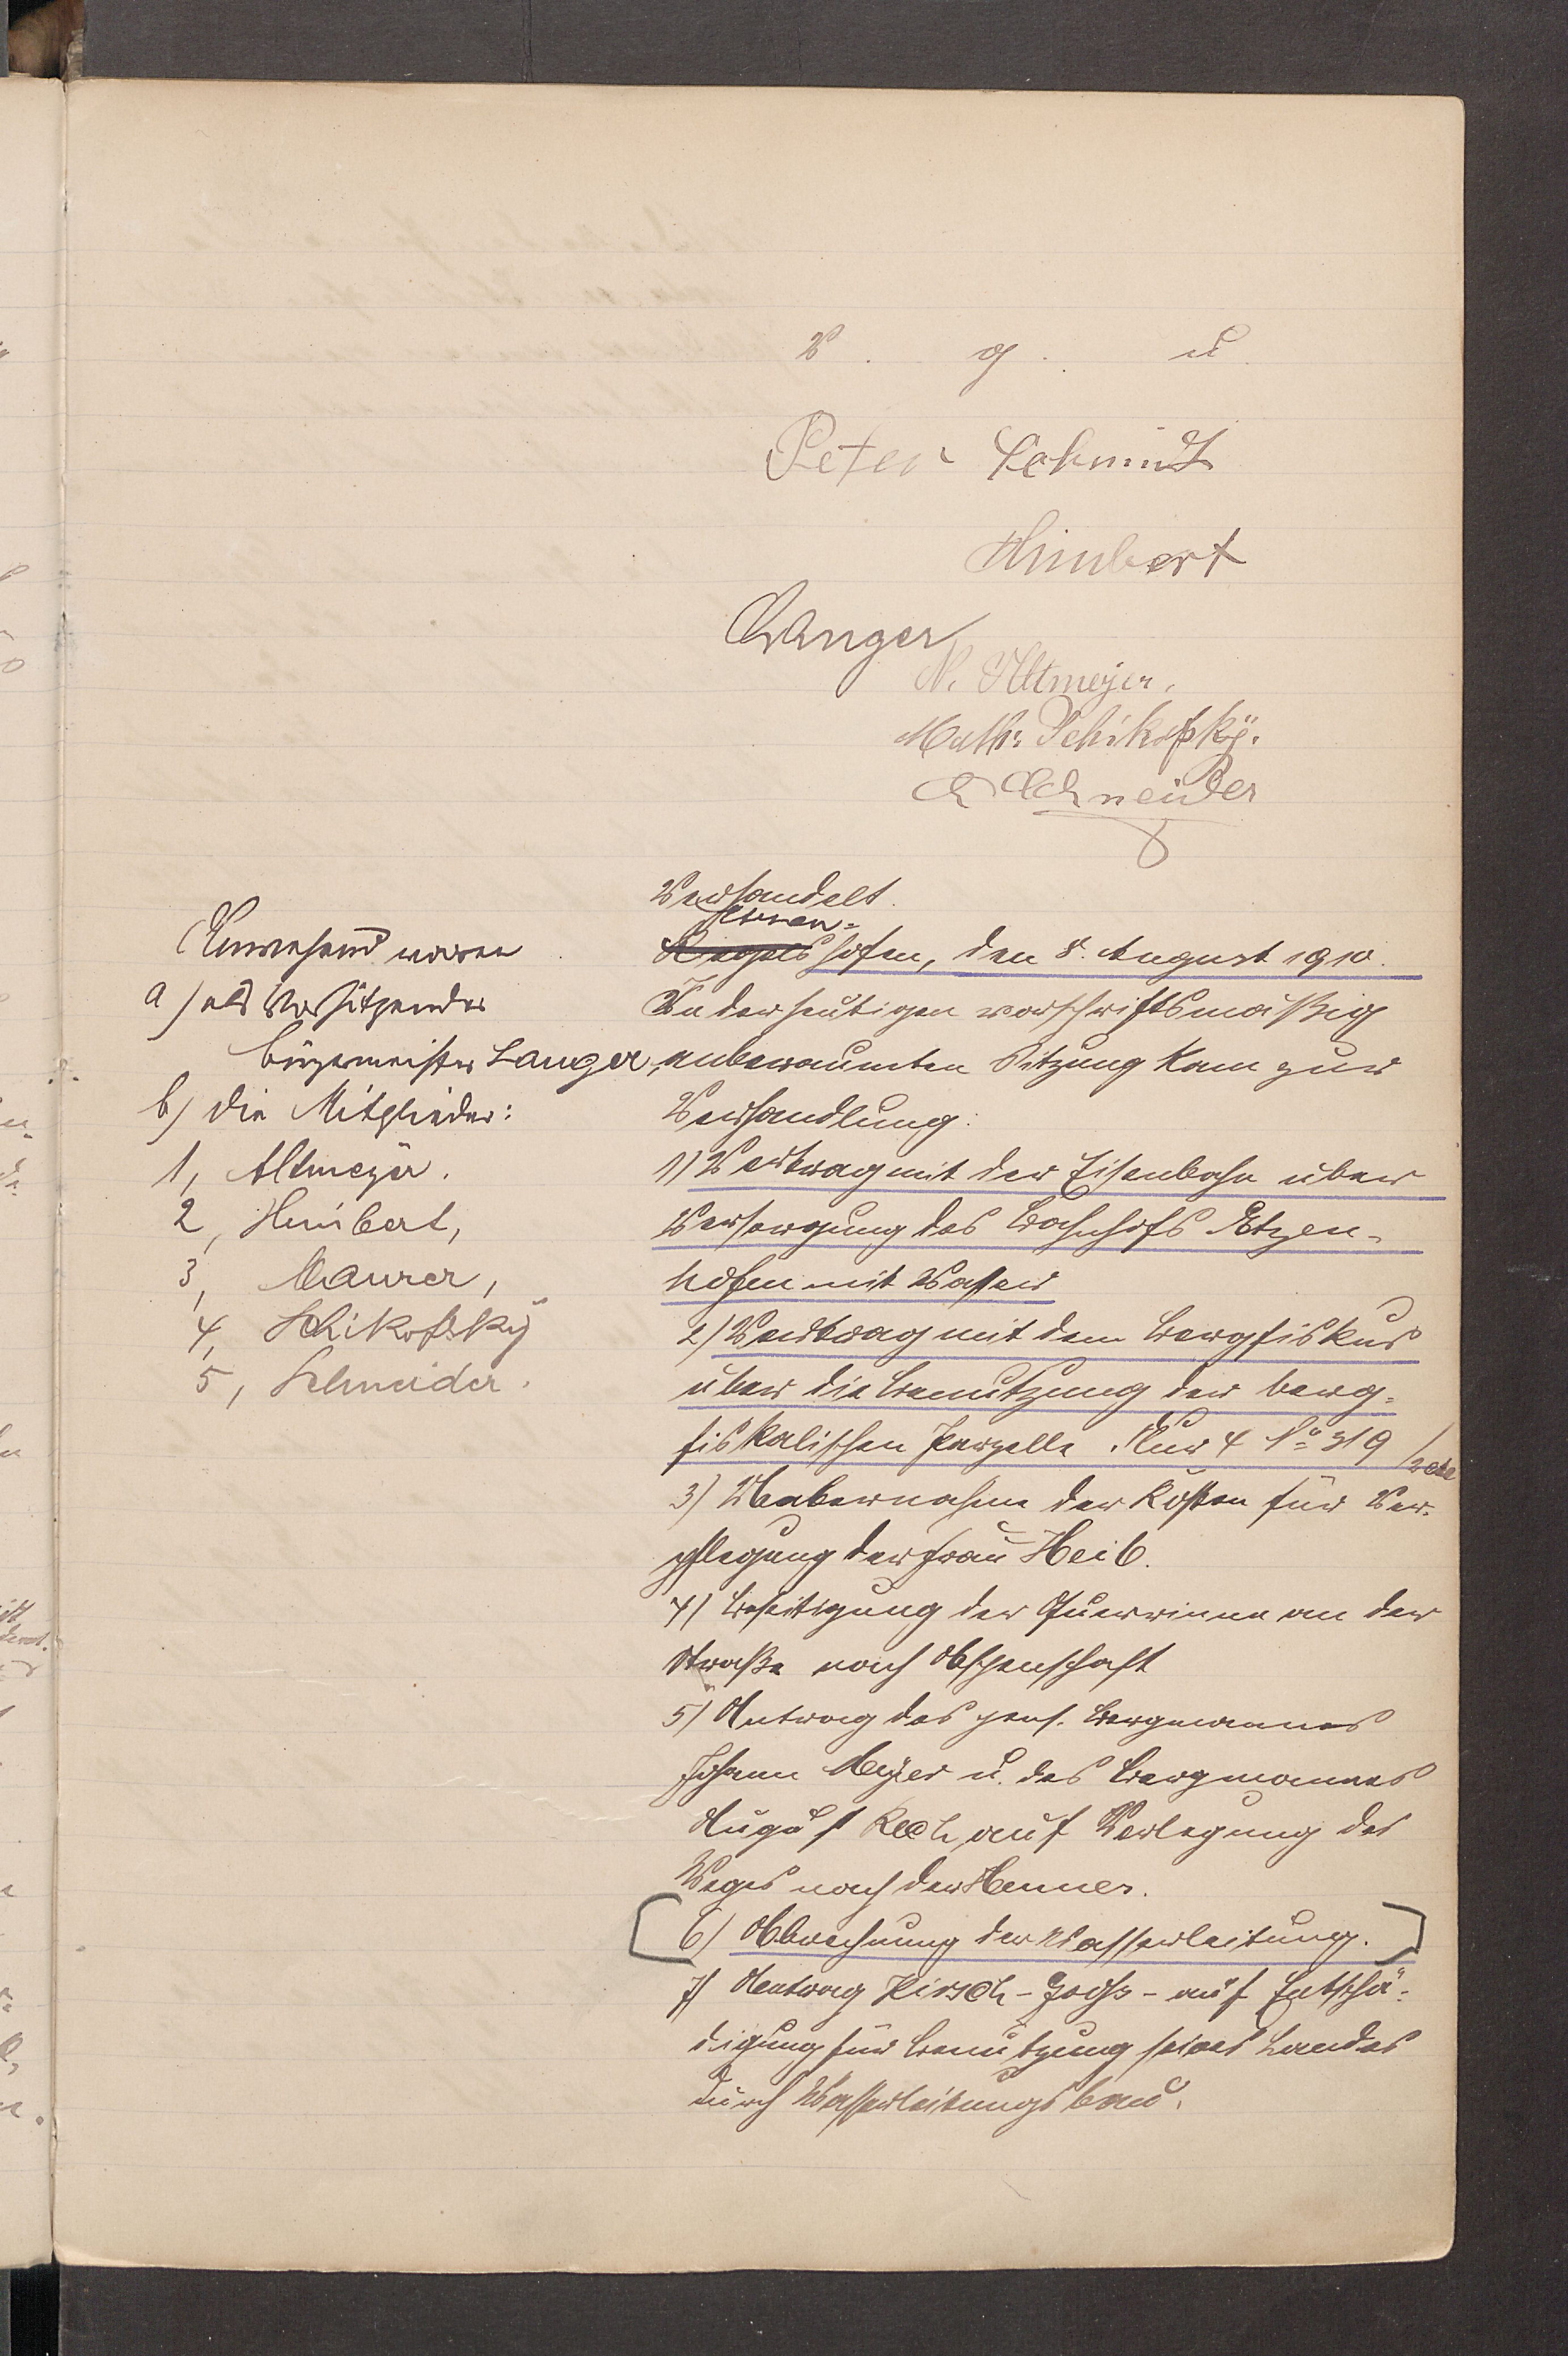 V. g. u.
Peter Schmidt
Himbert
Langer
N. Altmeyer.
Math: Schikofsky.
Schneider
Anwesend waren
a) als Vorsitzender
Bürgermeister Langer,
b) die Mitglieder:
1, Altmeyer.
2, Himbert,
3, Maurer,
4, Schikofsky
5, Schneider.
Verhandelt.
hofen, den 8. August 1910.
In der heutigen vorschriftsmäßig
anberaumten Sitzung kam zur
Verhandlung:
1) Vertrag mit der Eisenbahn über
Versorgung des Bahnhofs Etzen-
hofen mit Wasser
2) Vertrag mit dem Bergfiskus
über die Benutzung der berg-
fiskalischen Parzelle Flur 4 No 319
3) Uebernahme der Kosten für Ver-
pflegung der Frau Heib.
4) Beseitigung der Querrinne an der
Straße nach
5) Antrag des pens. Bergmannes
Johann Meyer u. des Bergmannes
August Rech auf Verlegung des
Weges nach der
6) Abrechnung der Wasserleitung.
7) Antrag Hirsch - - auf Entschä-
digung für Benutzung seines Landes
durch Wasserleitungsbau.